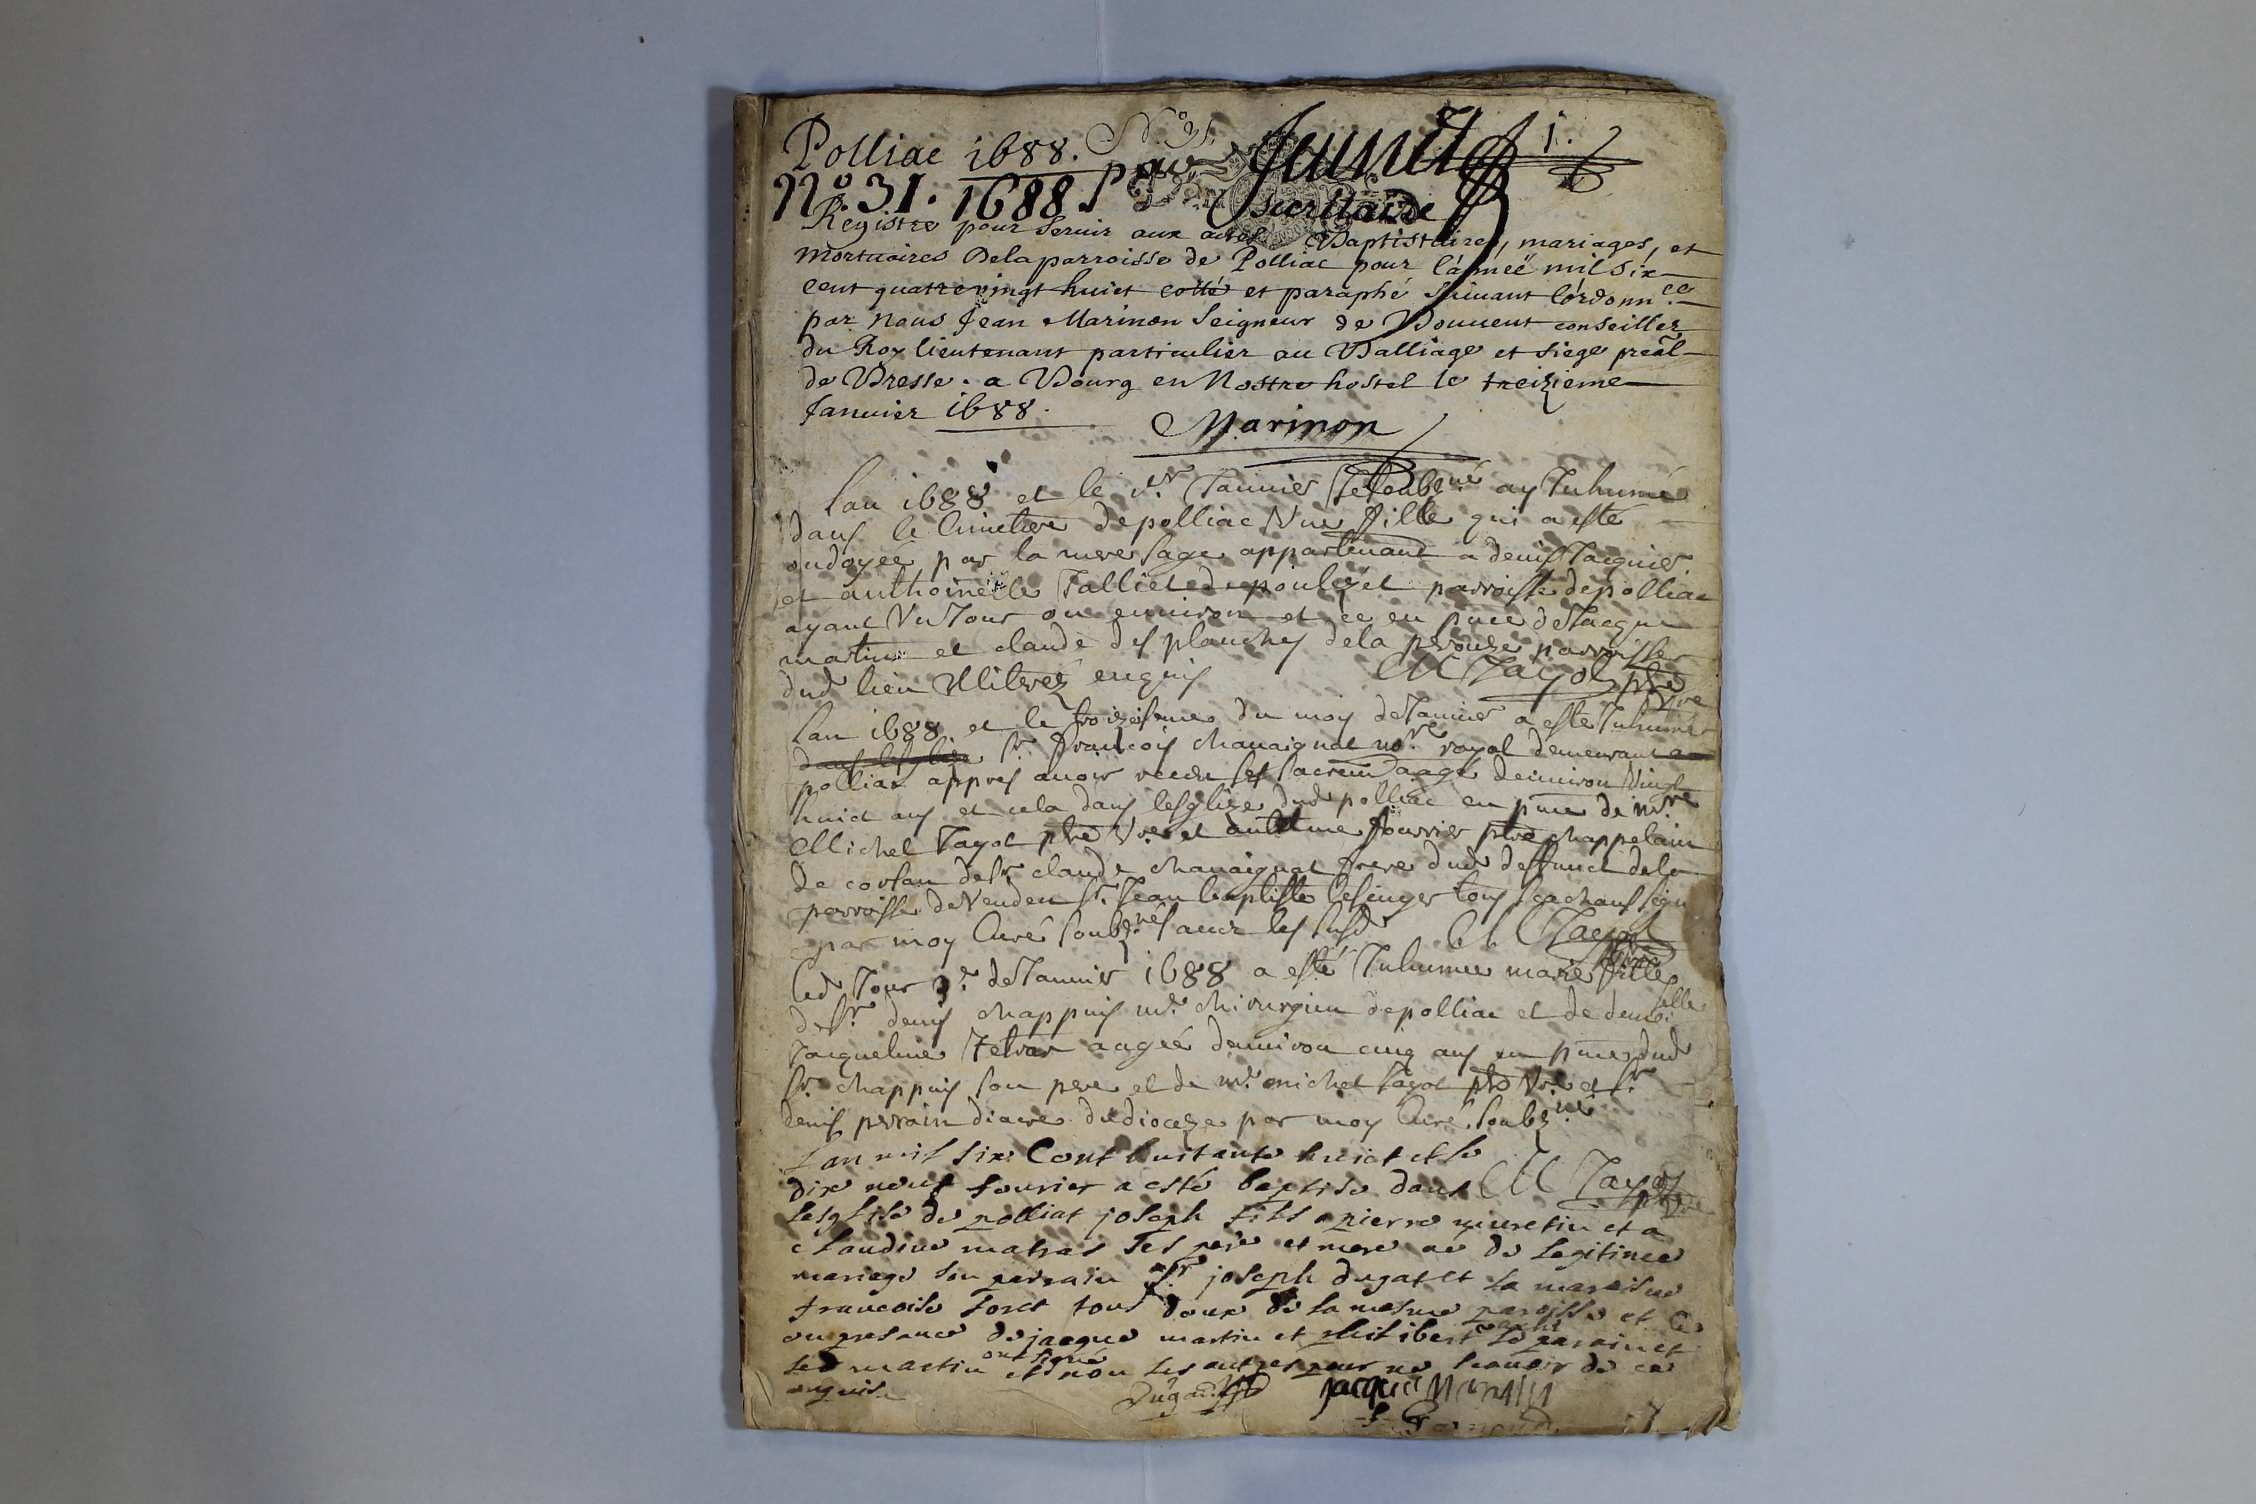 Polliac 1688. N.° 31. 1.
N.° 31. 1688. par
Secretaire
Registre pour Seruir aux actes Baptistaires, mariages, et
Mortuaires Dela parroisse de Polliac pour l'ánneë mil Six
cent quatre vingt huict cotté et paraphé Suivant l'órdonn.ce
par Nous Jean Marinon Seigneur de Bouuent conseiller
du Roy lieutenant particulier au Balliage et Siege preâl
de Bresse. a Bourg en Nostre hostel le treiziéme
Januier 1688.
Marinon
Lan 1688 et le Januier Je soubz.né ay Inhumé
dans le Cimetiere de polliac Vne fille qui a esté
ondoyée par la mere sage appartenant a denis Jacquier
et anthoinette Talliet de parroisse de polliac
ayant Vn Jour ou enuiron et ce en pnce de Jacque
martin et claude des planches de la perouze parroisse
dud lieu Illitrez enquis M Jayol pbre
Vre
Lan 1688. et le troiziesme du moy de Januier a esté Inhumé
dans lesglize Sr. françois chauaignat no.re royal demeurant a
polliac apprés auoir receu ses sacrem aagé denuiron Vingt
huict ans et cela dans lesglize dud polliac en pnce de m.re
Michel Jayol pbre Vre et fourrier pbre chappelain
de corsan de Sr claude chauaignat frere dud deffunct de la
parroisse de Vendeu Sr. Jean baptiste tous scachans sign
par moy Curé soubz.né auec les susd M Jayol
Led Jour 3.e de Januier 1688 a esté Inhumee marie fille
de Sr. denis chappuis m.e chirurgien de polliac et de demoi.selle
Jacqueline aagée denuiron cinq ans en pnce dud
Sr. chappuis son pere et de m.e michel Jayol pbre Vre et Sr
denis perrain diacre du dioceze par moy Curé soubz.né
Lan mil six Cent huitante huict et le
dix neuf feurier a esté baptisé dans M Jayol
lesglise de polliat joseph fils a pierre muretin et a
claudine matras ses pere et mere né de legitime
mariage son parrain Sr. joseph dugat et la maraisne
francoise foret tous deux de la mesme paroisse et ce
en presance de jacque martin et philibert le parain et
led martin ont signé et non les autres pour ne scauoir de ce
enquis Dugat jacque Martin